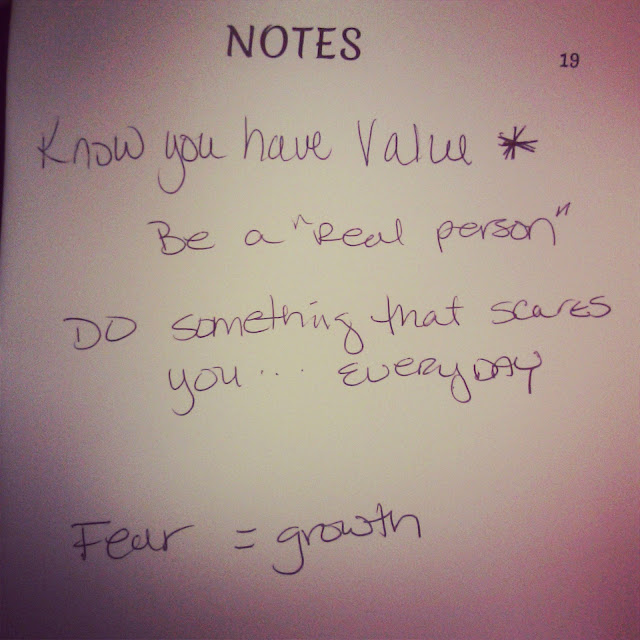 NOTES
19
Know you have Value *
Be a "Real person"
DO something that scares
you.... EVERYDAY
Fear = growth